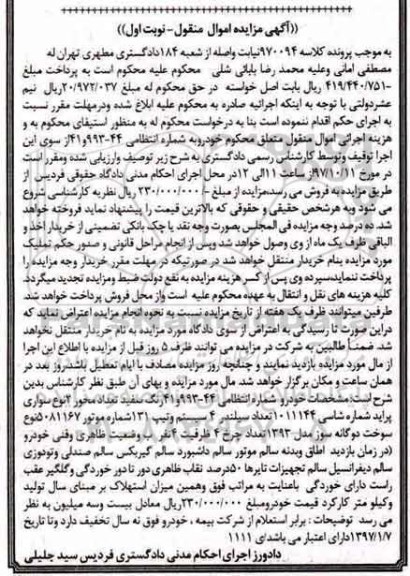 ((آگهی مزایده اموال منقول-نوبت اول))
به موجب پرونده کلاسه ۹۷۰۰۹۴نیابت واصله از شعبه ۱۸۴دادگستری مطهری تهران له
مصطفی امانی وعلیه محمد رضا بابائی شلی محکوم علیه محکوم است به پرداخت مبلغ
۴۱۹/۴۴۰/۷۵۱- ریال بابت اصل خواسته در حق محکوم له مبلغ ۲۰/۹۷۲/۰۳۷ ریال نیم
عشردولتی با توجه به اینکه اجرائیه صادره به محکوم علیه ابلاغ شده ودرمهلت مقرر نسبت
به اجرای حکم اقدام ننموده است بنا به درخواست محکوم له به منظور استیفای محکوم به و
هزینه اجرائی اموال منقول متعلق محکوم خودروبه شماره انتظامی ۴۴-۹۹۳و۴۱از سوی این
اجرا توقیف وتوسط کارشناس رسمی دادگستری به شرح زیر توصیف وارزیابی شده ومقرر است
در مورخ ۹۷/۱۰/۱۱از ساعت ۱۱الی ۱۲در محل اجرای احکام مدنی دادگاه حقوقی فردیس از
طریق مزایده به فروش می رسد،مزایده از مبلغ -/۲۳۰/۰۰۰/۰۰۰ ریال نظریه کارشناسی شروع
می شود وبه هرشخص حقیقی و حقوقی که بالاترین قیمت را پیشنهاد نماید فروخته خواهد
شد. ده درصد وجه مزایده فی المجلس بصورت وجه نقد یا چک بانکی تضمینی از خریدار اخذ و
الباقی ظرف یک ماه از وی وصول خواهد شد وپس از انجام مراحل قانونی و صدور حکم تملیک
مورد مزایده بنام خریدار منتقل خواهد شد در صورتیکه در مهلت مقرر خریدار وجه مزایده را
پرداخت ننمایدسپرده وی پس از کسر هزینه مزایده به نفع دولت ضبط ومزایده تجدید میگردد.
کلیه هزینه های نقل و انتقال به عهده محکوم علیه است واز محل فروش پرداخت خواهد شد.
طرفین میتوانند ظرف یک هفته از تاریخ مزایده نسبت به نحوه انجام مزایده اعتراض نماید که
دراین صورت تا رسیدگی به اعتراض از سوی دادگاه مورد مزایده به نام خریدار منتقل نخواهد
شد. ضمنا طالبین به شرکت در مزایده می توانند ظرف ۵ روز قبل از مزایده با اطلاع این اجرا
از مال مورد مزایده بازدید نمایند و چنانچه روز مزایده مصادف با ایام تعطیل باشد،روز بعد در
همان ساعت و مکان برگزار خواهد شد. مال مورد مزایده و بهای آن طبق نظر کارشناس بدین
شرح است: مشخصات خودرو شماره انتظامی ۴۴-۹۹۳و۴۱رنگ سفید تعداد محور۲نوع سواری
پراید شماره شاسی ۱۰۱۱۱۴۴تعداد سیلندر ۴ سیستم وتیپ ۱۳۱شماره موتور ۵۰۸۱۱۶۷نوع
سوخت دوگانه سوز مدل ۱۳۹۳تعداد چرخ ۴ ظرفیت ۴نفر ب- وضعیت ظاهری وفنی خودرو
(در زمان بازدید اطاق وبدنه سالم موتور سالم داشبورد سالم گیربکس سالم صندلی وتودوزی
سالم دیفرانسیل سالم تجهیزات تایرها ۵۰درصد نقاب ظاهری دور تا دور خوردگی وگلگیر عقب
راست دارای خوردگی باعنایت به مراتب فوق وهمین میزان استهلاک بر مبنای سال تولید
وکیلو متر کارکرد قیمت خودرومبلغ ۲۳۰/۰۰۰/۰۰۰ریال معادل بیست وسه میلیون به نظر
می رسد توضیحات : برابر استعلام از شرکت بیمه ، خودرو فوق نه سال تخفیف دارد وتا تاریخ
۱۳۹۷/۱/۷دارای اعتبار می باشد/ی ۱۱۱۱
دادورز اجرای احکام مدنی دادگستری فردیس سید جلیلی